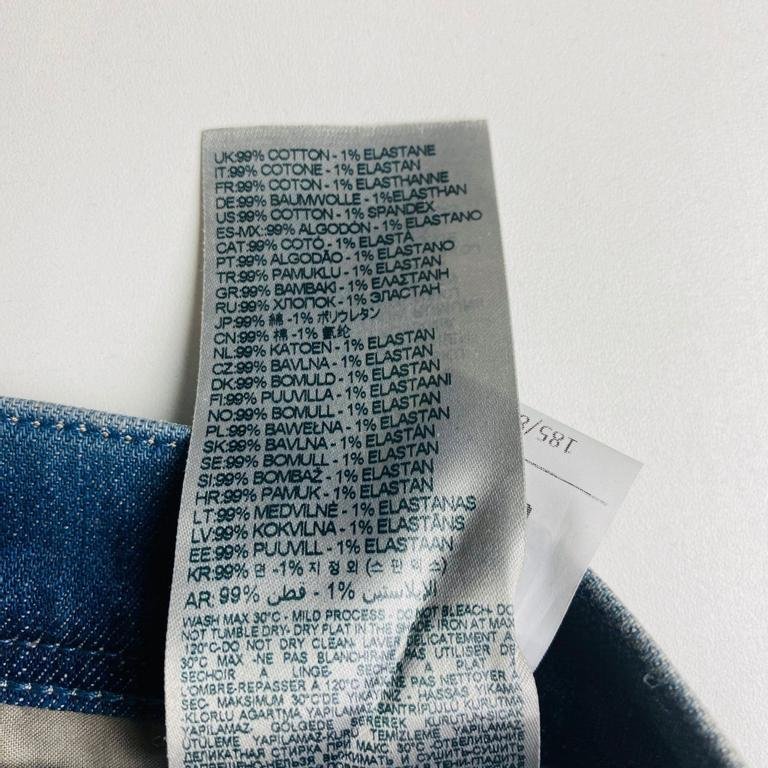 UK:99% COTTON - 1% ELASTANE
IT:99% COTONE - 1% ELASTAN
FR:99% COTON - 1% ELASTHANNE
DE:99% BAUMWOLLE - 1%ELASTHAN
US:99% COTTON - 1% SPANDEX
ES-MX::99% ALGODÓN - 1% ELASTANO
CAT:99% COTÓ - 1% ELASTÀ
PT:99% ALGODÃO - 1% ELASTANO
TR:99% PAMUKLU - 1% ELASTAN
GR:99% BAMBAKI - 1% ΕΛΑΣΤΑΝΗ
RU:99% ХЛОПОК - 1% ЭЛАСТАН
JP:99% 綿 -1% ポリウレタン
CN:99% 棉 -1% 氨纶
NL:99% KATOEN - 1% ELASTAN
CZ:99% BAVLNA - 1% ELASTAN
DK:99% BOMULD - 1% ELASTAN
FI:99% PUUVILLA - 1% ELASTAANI
NO:99% BOMULL - 1% ELASTAN
PL:99% BAWEŁNA - 1% ELASTAN
SK:99% BAVLNA - 1% ELASTAN
SE:99% BOMULL - 1% ELASTAN
SI:99% BOMBAŽ - 1% ELASTAN
HR:99% PAMUK - 1% ELASTAN
LT:99% MEDVILNĖ - 1% ELASTANAS
LV:99% KOKVILNA - 1% ELASTĀNS
EE:99% PUUVILL - 1% ELASTAAN
KR:99% 면 -1% 지정외 (스판덱스)
AR: 99% قطن - 1% الإيلاستين
WASH MAX 30°C - MILD PROCESS - DO NOT BLEACH- DO
NOT TUMBLE DRY- DRY FLAT IN THE SHADE IRON AT MAX
120°C-DO NOT DRY CLEAN. LAVER DELICATEMENT A
30°C MAX -NE PAS BLANCHIR-NE PAS UTILISER DE
SECHOIR A LINGE- SECHER A PLAT
L'OMBRE-REPASSER À 120°C MAX-NE PAS NETTOYER
SEC- MAKSIMUM 30°C'DE YIKAYINIZ - HASSAS YIKAMA
-KLORLU AGARTMA YAPILAMAZ-SANTRIFUJLU KURUTMA
YAPILAMAZ- GÖLGEDE SEREREK KURUTUN
UTULEME YAPILAMAZ-KURU TEMIZLEME YAPILAMAZ
ДЕЛИКАТНАЯ СТИРКА ПРИ МАКС 30°C -ОТБЕЛИВАНИЕ
185/8